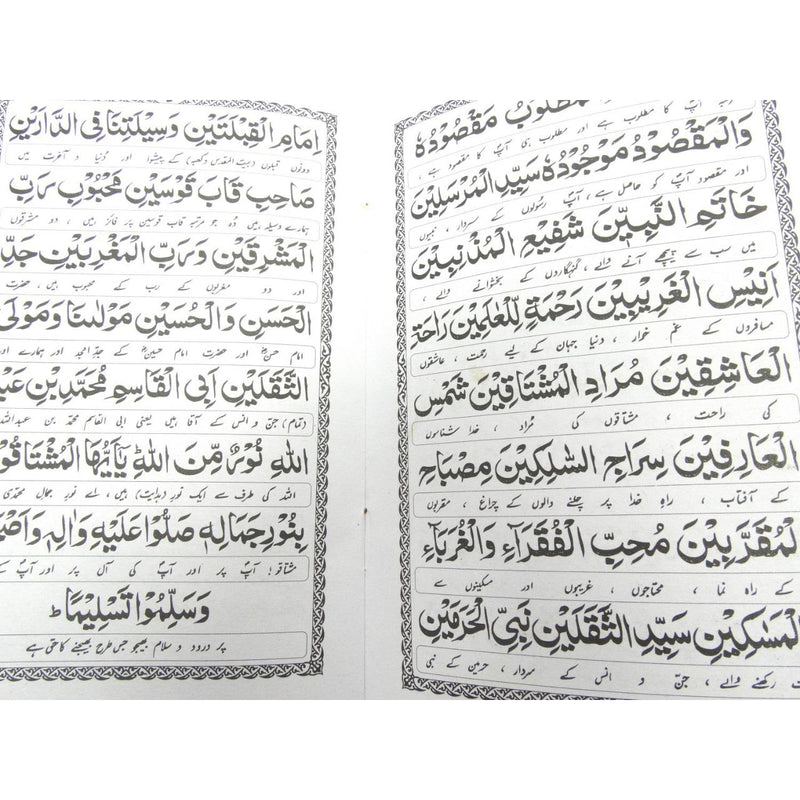 مَطْلُوْبُ مَقْصُوْدُهٗ
آپؐ کا مطلوب ہے اور مطلوب ہی آپؐ کا مقصود ہے ،
وَالْمَقْصُوْدُ مَوْجُوْدُهٗ سَيِّدِ الْمُرْسَلِيْنَ
اور مقصود آپؐ کو حاصل ہے ، آپؐ رسولوں کے سردار ، نبیوں
خَاتِمِ النَّبِيِّيْنَ شَفِيْعِ الْمُذْنِبِيْنَ
میں سب سے پیچھے آنے والے ، گنہگاروں کے بخشوانے والے ،
اَنِيْسِ الْغَرِيْبِيْنَ رَحْمَةٍ لِّلْعٰلَمِيْنَ رَاحَةِ
مسافروں کے غم خوار ، دنیا جہان کے لیے رحمت ، عاشقوں
الْعَاشِقِيْنَ مُرَادِ الْمُشْتَاقِيْنَ شَمْسِ
کی راحت ، مشتاقوں کی مُراد ، خدا شناسوں
الْعَارِفِيْنَ سِرَاجِ السَّالِكِيْنَ مِصْبَاحِ
کے آفتاب ، راہِ خدا پر چلنے والوں کے چراغ ، مقربوں
الْمُقَرَّبِيْنَ مُحِبِّ الْفُقَرَآءِ وَالْغُرَبَآءِ
کے راہ نما ، محتاجوں ، غریبوں اور مسکینوں سے
الْمَسَاكِيْنِ سَيِّدِ الثَّقَلَيْنِ نَبِيِّ الْحَرَمَيْنِ
رکھنے والے ، جنّ و انس کے سردار ، حرمین کے نبی
اِمَامِ الْقِبْلَتَيْنِ وَسِيْلَتِنَا فِى الدَّارَيْنِ
دونوں قبلوں (بیت المقدس و کعبہ) کے پیشوا اور دُنیا و آخرت میں
صَاحِبِ قَابَ قَوْسَيْنِ مَحْبُوْبِ رَبِّ
ہمارے وسیلہ ہیں وُہ جو مرتبہ قاب قوسین پر فائز ہیں ، دو مشرقوں
الْمَشْرِقَيْنِ وَرَبِّ الْمَغْرِبَيْنِ جَدِّ
اور دو مغربوں کے رب کے محبوب ہیں ، حضرت
الْحَسَنِ وَالْحُسَيْنِ مَوْلٰىنَا وَمَوْلَى
امام حسنؓ اور حضرت امام حسینؓ کے جدِّ امجد اور ہمارے اور
الثَّقَلَيْنِ اَبِى الْقَاسِمِ مُحَمَّدِ بْنِ
(تمام) جنّ و انس کے آقا ہیں یعنی ابی القاسم محمّد بن عبداللہ
اللهِ نُوْرٍ مِّنْ نُّوْرِ اللهِ يٰٓاَيُّهَا
اللہ کی طرف سے ایک نور (ہدایت) ہیں ، اے نورِ جمالِ محمّدی
بِنُوْرِ جَمَالِهٖ صَلُّوْا عَلَيْهِ وَاٰلِهٖ
مشتاقو! آپؐ پر اور آپؐ کی آل پر اور آپؐ کے
وَسَلِّمُوْا تَسْلِيْمًا ط
پر درود و سلام بھیجو جس طرح بھیجنے کا حق ہے